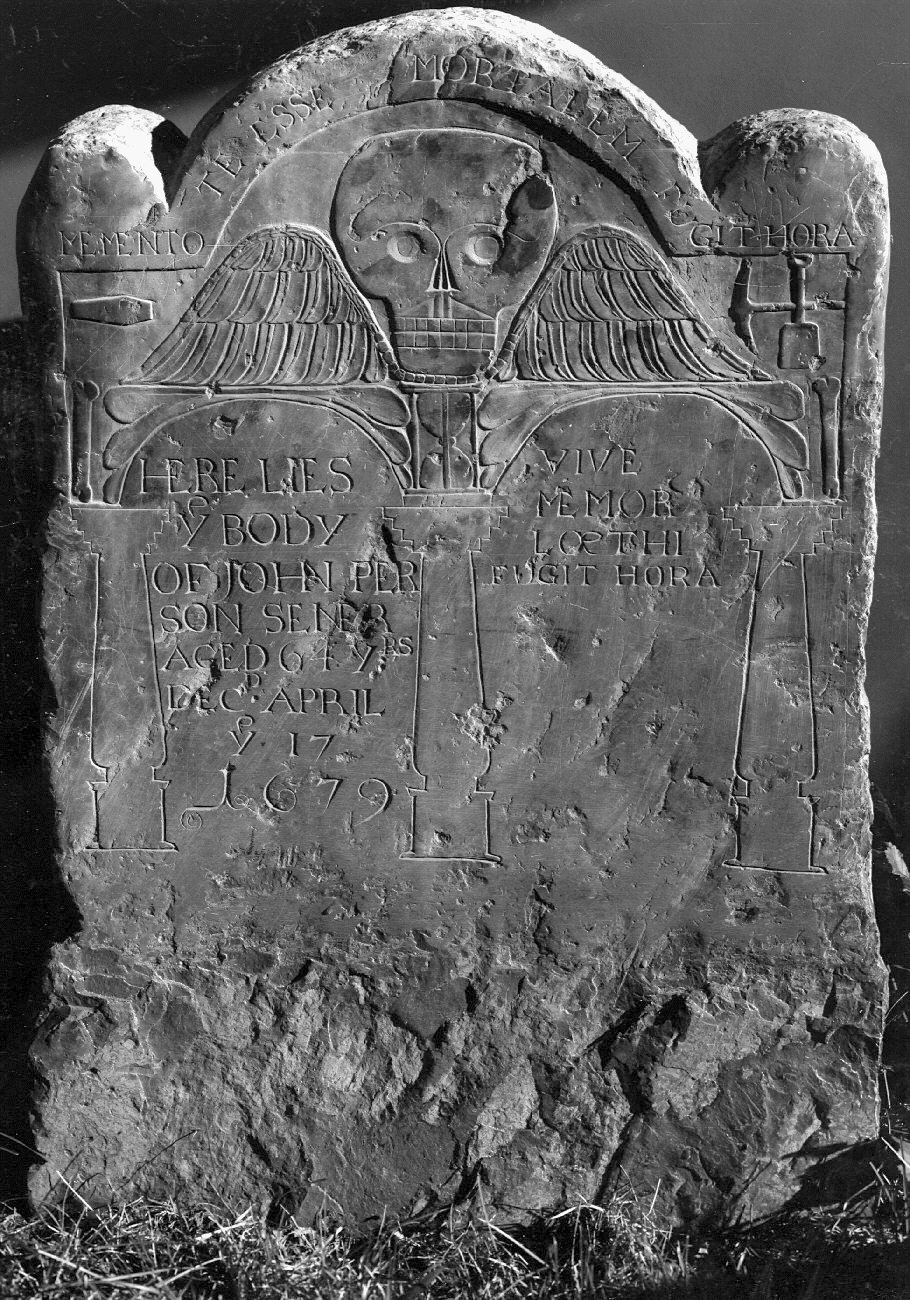 MEMENTO TE ESSE MORTALEM FUGIT HORA
HERE LIES
Yᵉ BODY
OF JOHN PER
SON SENᵉR
AGED 64 YᴿS
DECᴰ. APRIL
Yᵉ 17
1679
VIVE
MEMOR
LŒTHI
FUGIT HORA